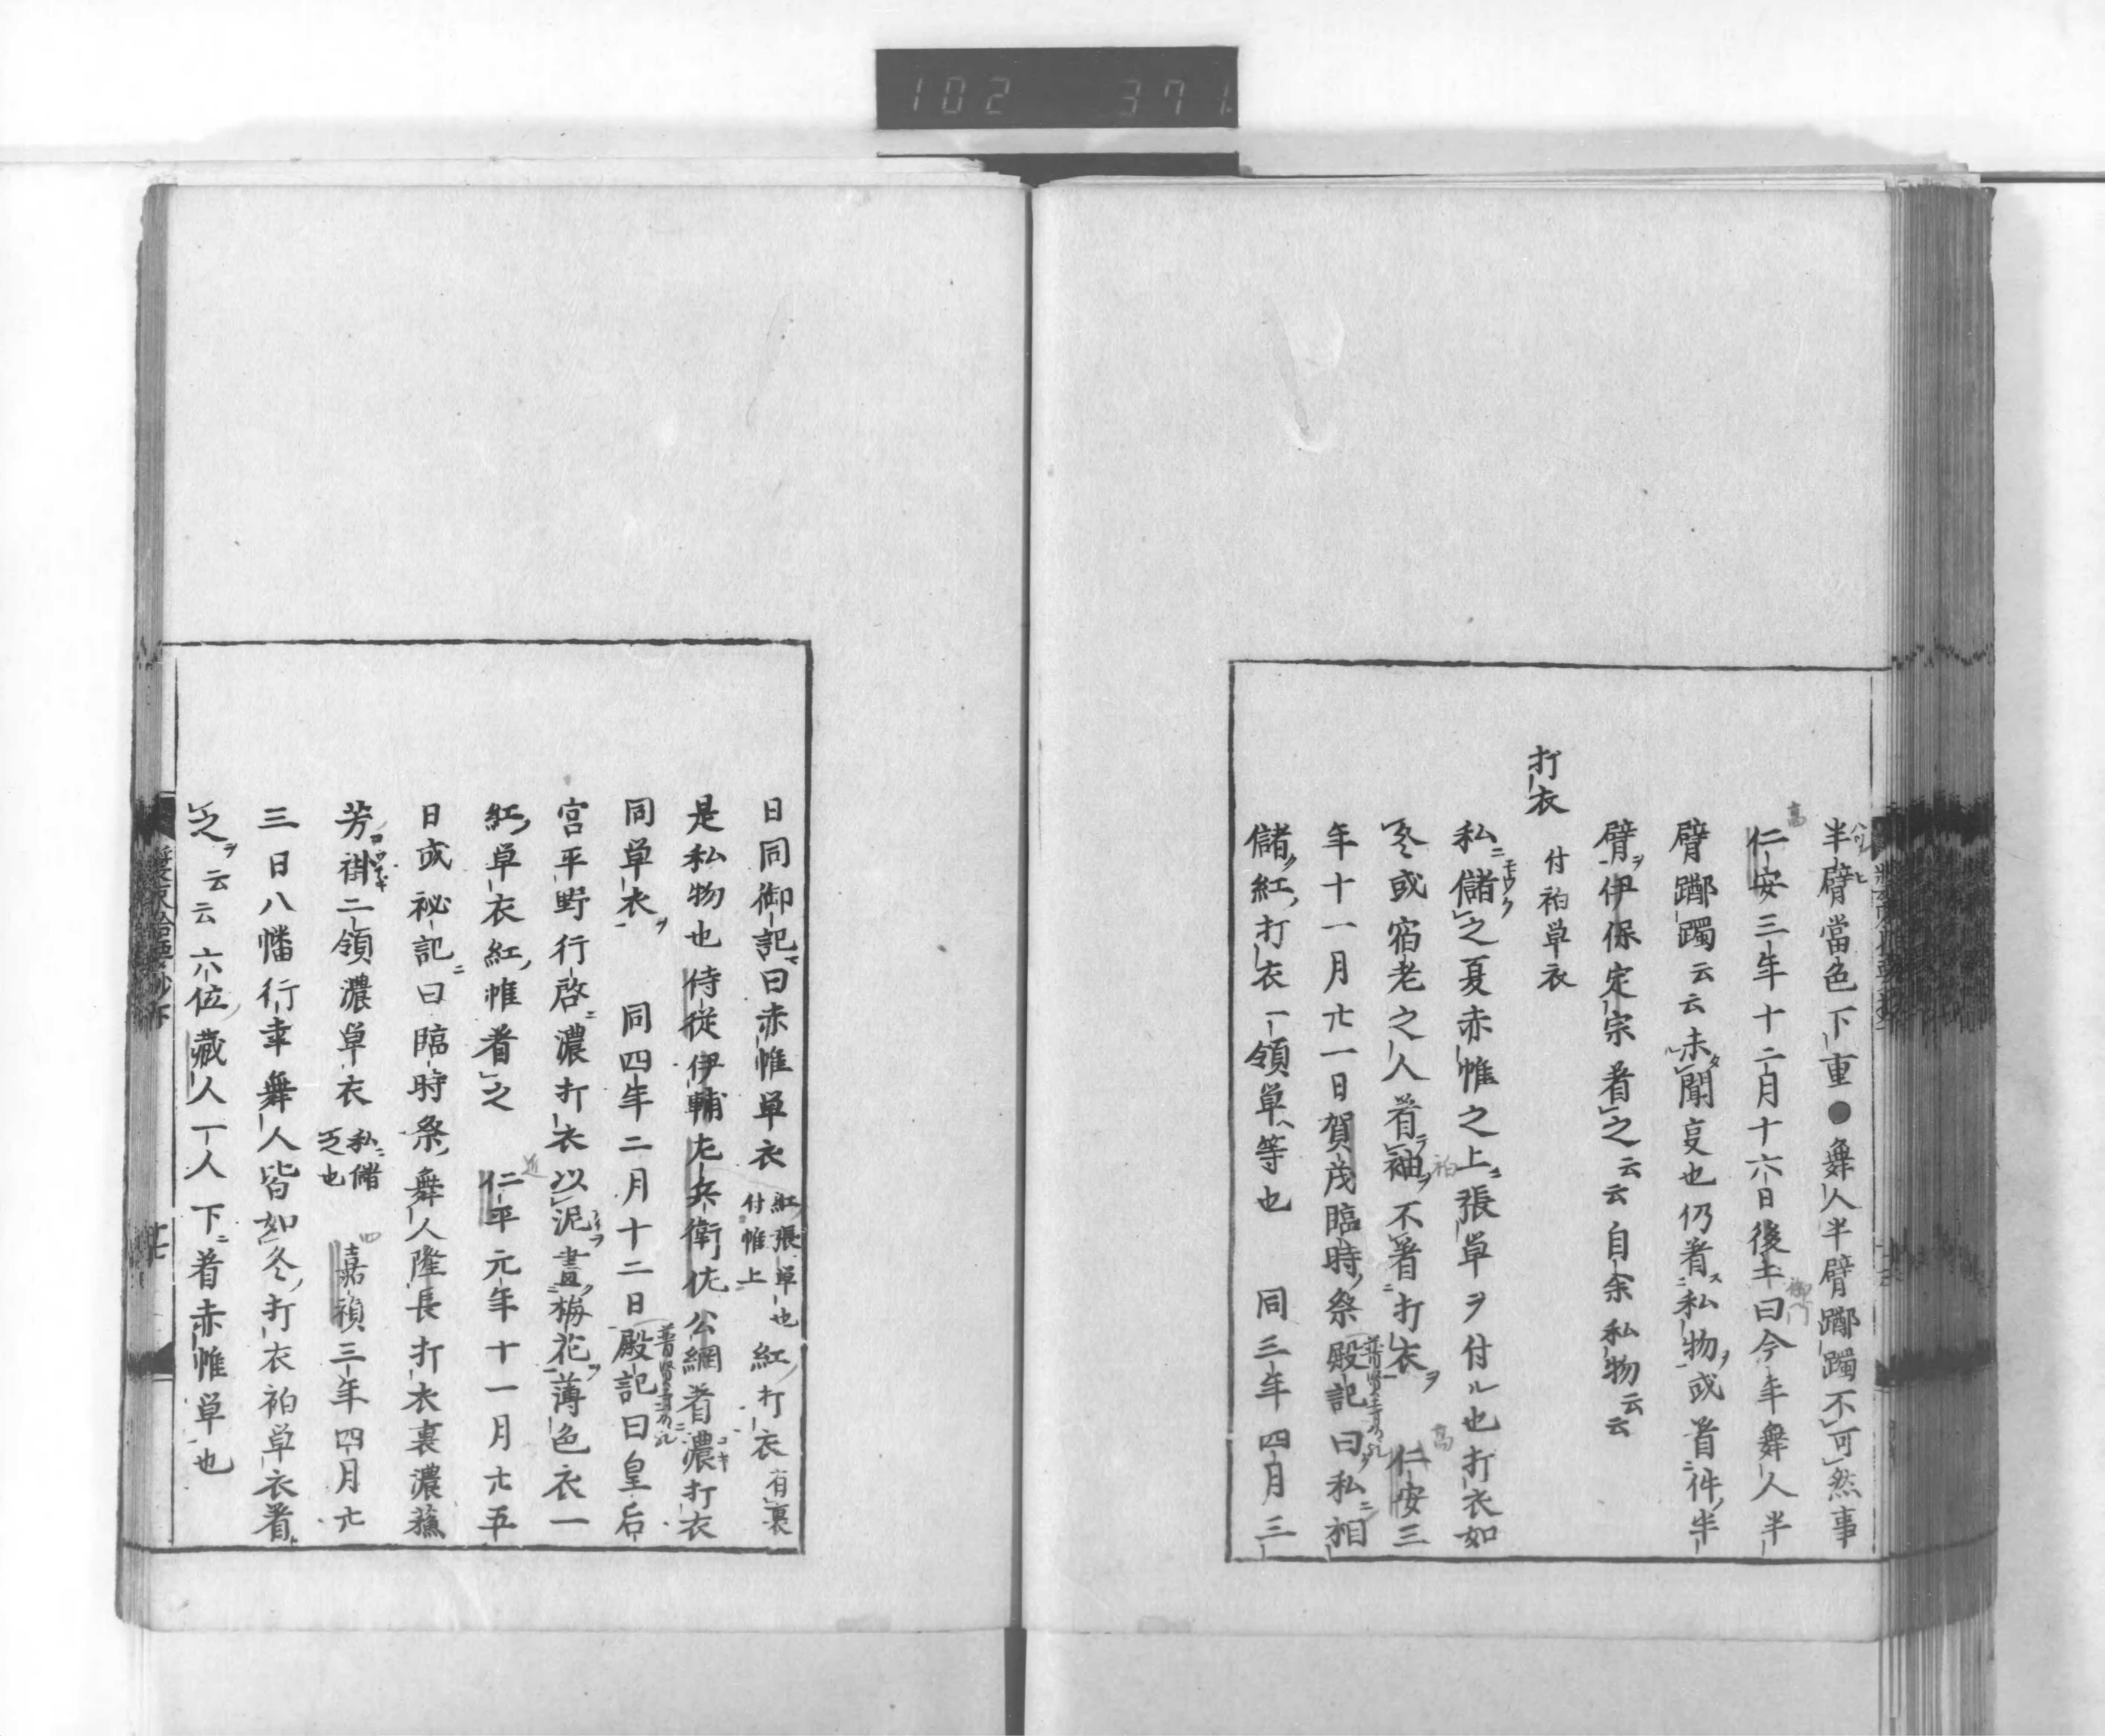 102 371
半臂當色下重●舞人半臂躑躅不可然事
仁安三年十二月十六日後キ曰今年舞人半
臂躑躅云云未聞叓也仍着私物或着件半
臂伊保定宗着之云云自余私物云云
打衣 付衵単衣
私儲之夏赤帷之上張単ヲ付ル也打衣如
冬或宿老之人着衵不着打衣 仁安三
年十一月廿一日賀茂臨時祭殿記曰私相
儲紅打衣一領単等也 同三年四月三
日同御記曰赤帷単衣紅張単也付帷上紅打衣有裏
是私物也侍従伊輔左兵衛佐公綱着濃打衣
同単衣 同四年二月十二日殿記曰皇后
宮平野行啓濃打衣以泥畫梅花薄色衣一
紅単衣紅帷着之 仁平元年十一月廿五
日或祕記曰臨時祭舞人隆長打衣裏濃蘇
芳褂二領濃単衣私儲之也 嘉禎三年四月廿
三日八幡行幸舞人皆如冬打衣衵単衣着
之云云六位蔵人一人下着赤帷単也